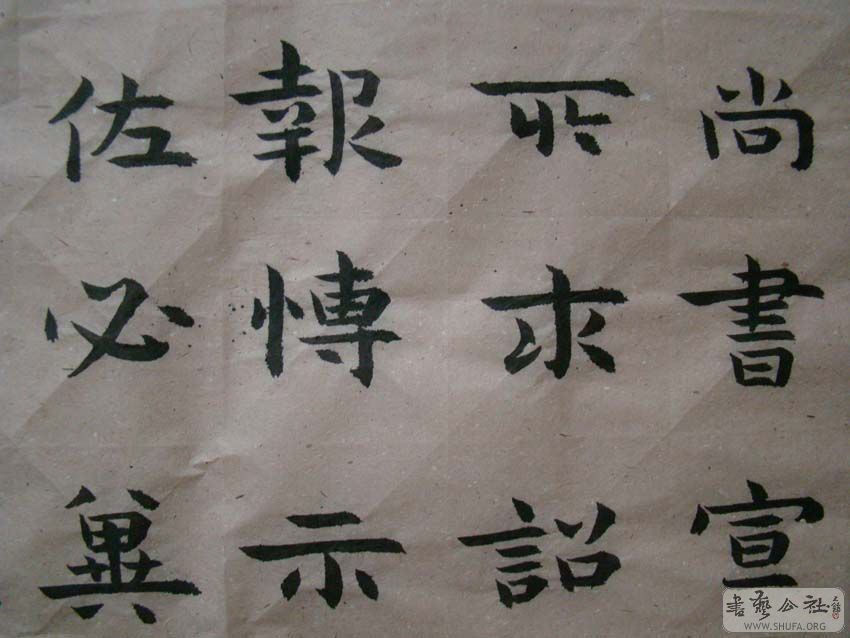 尚書宣
所求詔
報愽示
佐必冀
書藝公社
WWW.SHUFA.ORG